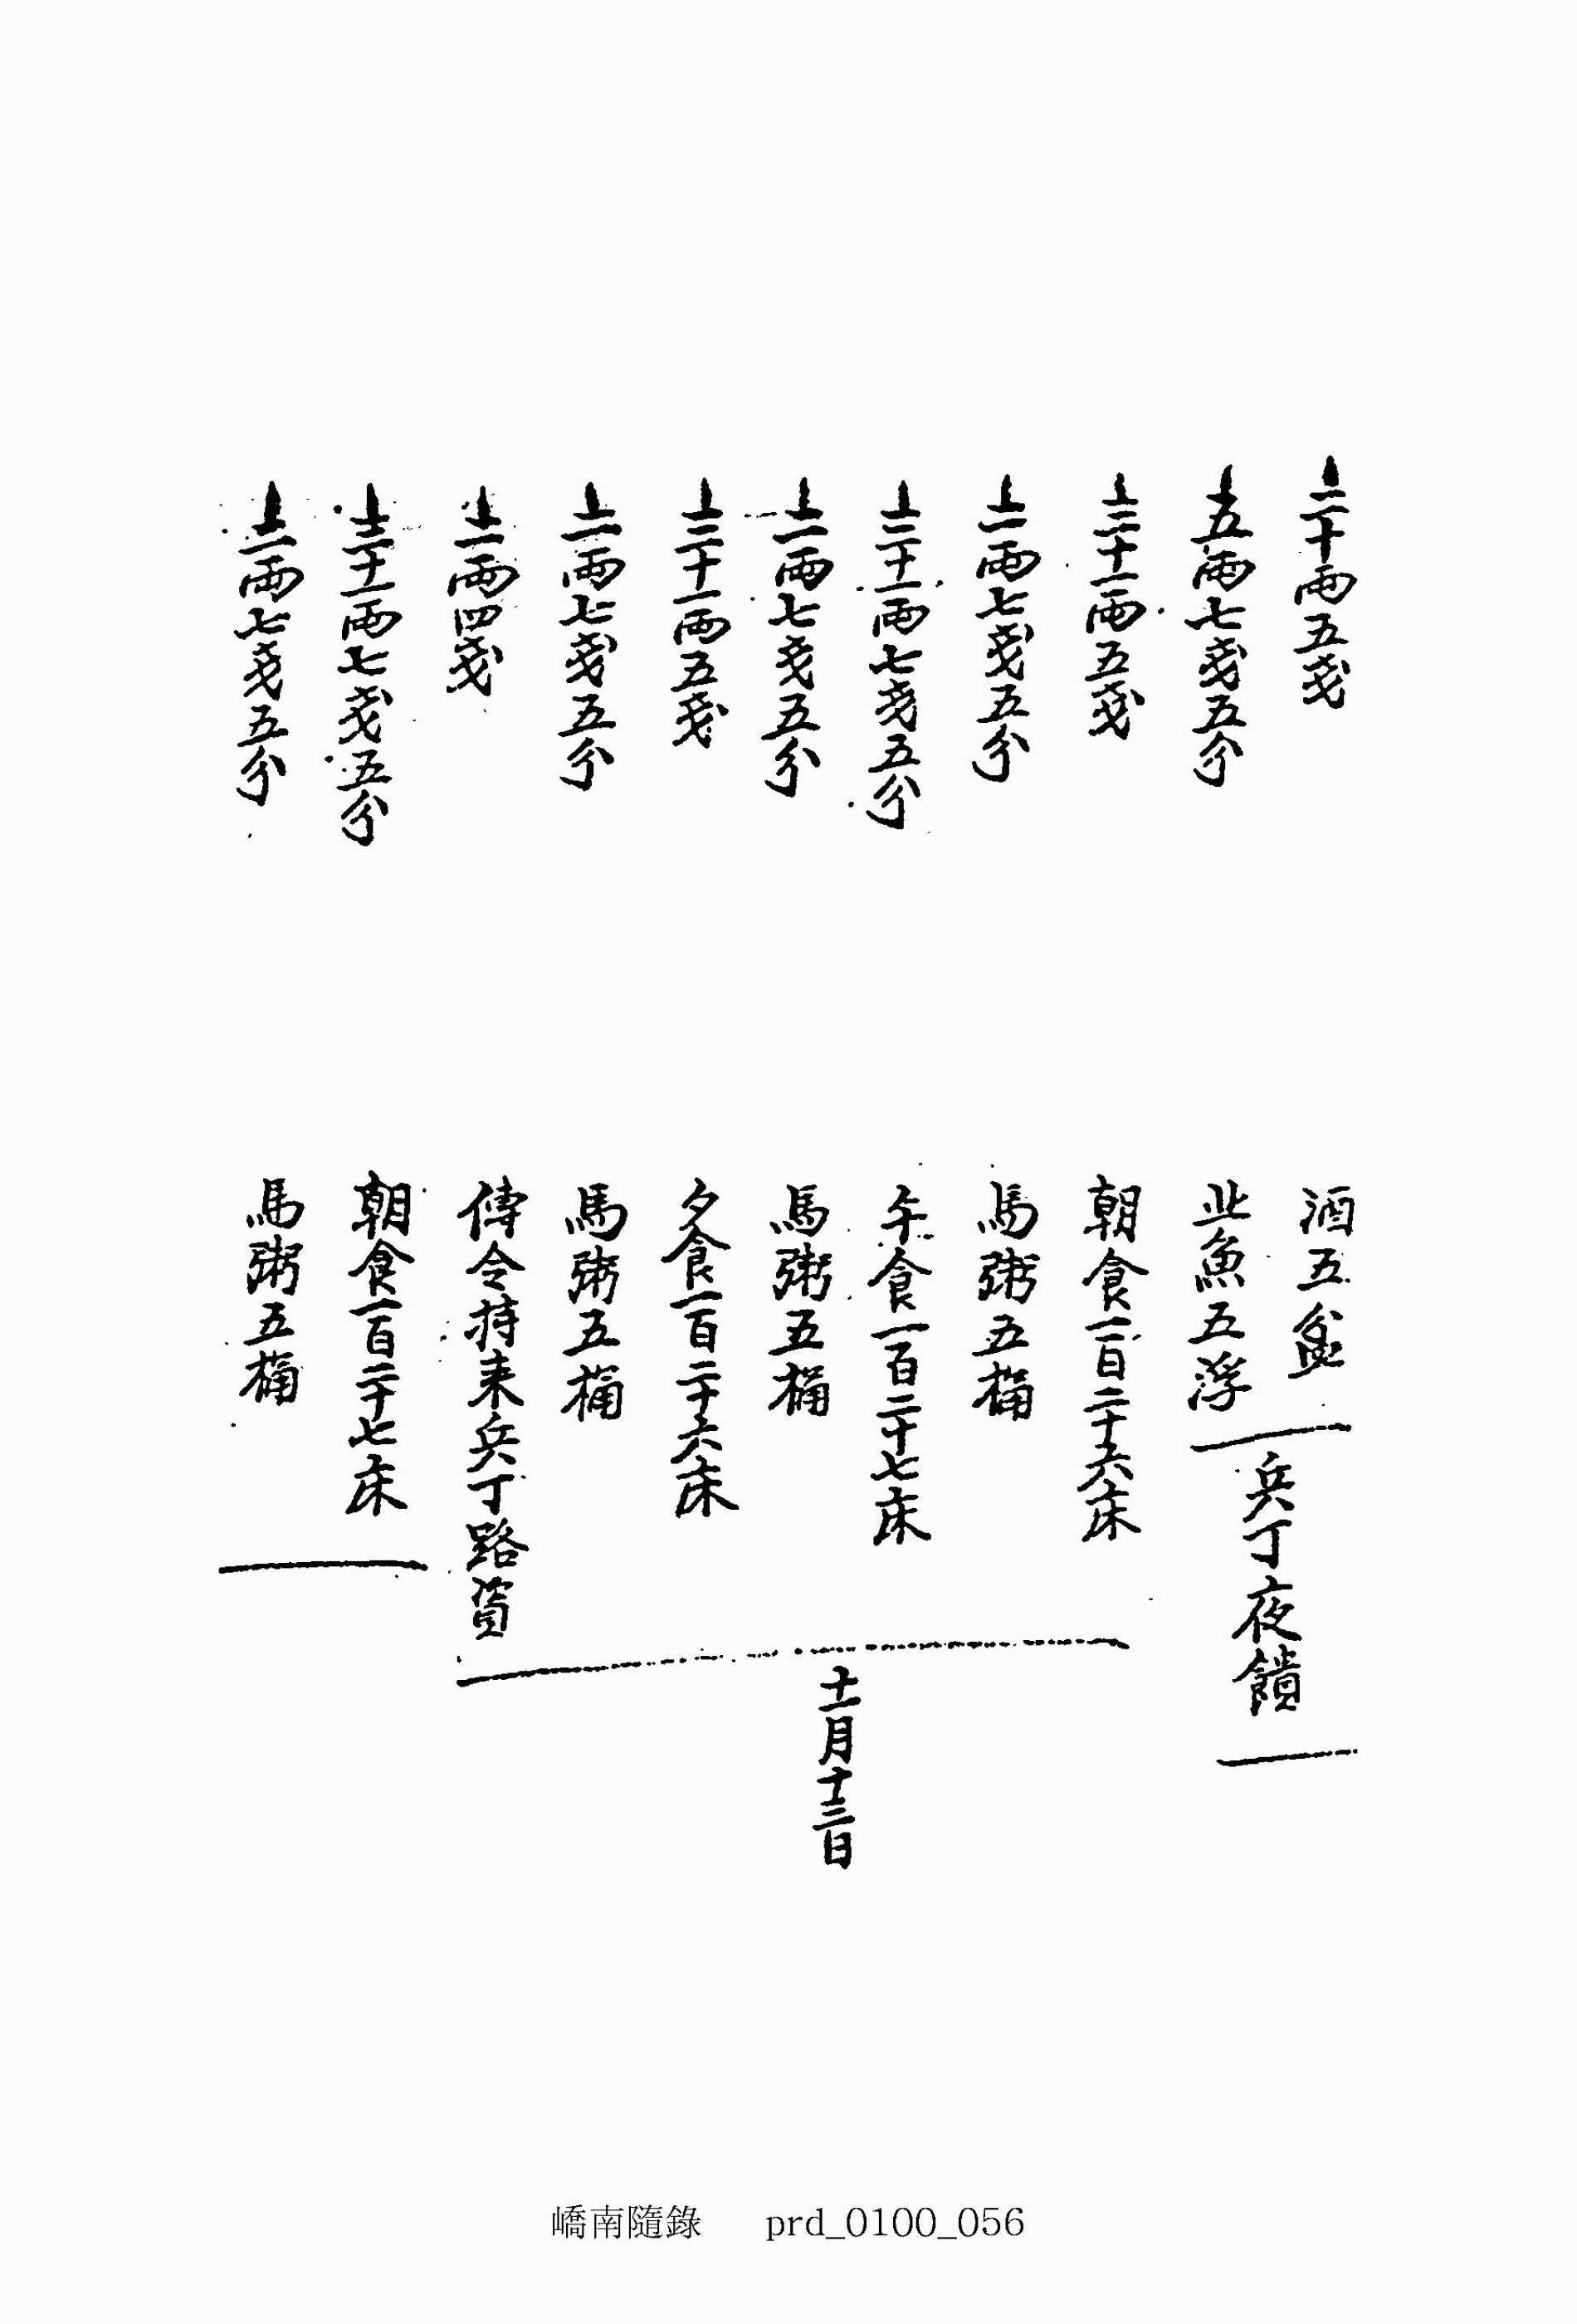 上二十両五戔
酒五盆
上五両七戔五分
北魚五浮
兵丁夜饋
上三十一両五戔
朝食一百二十六床
上一両七戔五分
馬粥五桶
上三十一両七戔五分
午食一百二十七床
上一両七戔五分
馬粥五桶
上三十一両五戔
夕食一百二十六床
上一両七戔五分
馬粥五桶
上一両四戔
傳令持来兵丁路資
十一月十三日
上三十一両七戔五分
朝食一百二十七床
上一両七戔五分
馬粥五桶
嶠南隨錄 prd_0100_056